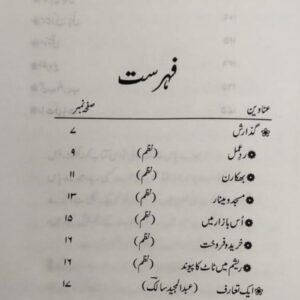 فہرست
عناوین صفحہ نمبر
گذارش ۷
ردِ عمل (نظم) ۹
بھکارن (نظم) ۱۱
مسجد و مینار (نظم) ۱۳
اُس بازار میں (نظم) ۱۵
خرید و فروخت (نظم) ۱۶
ریشم میں ٹاٹ کا پیوند (نظم) ۱۶
ایک تعارف (عبدالمجید سالک) ۱۷